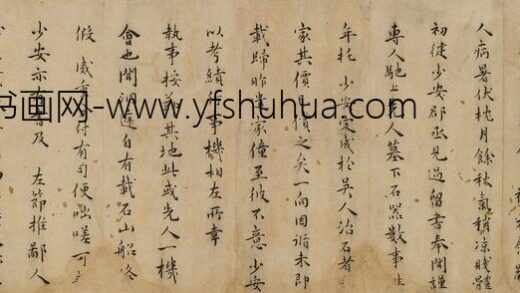 人病暑伏枕月餘秋氣稍涼賤體
初徤少安郡丞見過留書奉聞謹
專人馳上先人墓下石器數事
年托 少安定成於吳人治石者
家其價已償之矣一向因循未即
載歸昨遣家僮至彼不意少安
以考績事機相左所幸
執事按其地此或先人一機
會也聞途自有載石山船
假 威重分付有司便咄嗟可
少安亦有書及 左節推鄙人
书画网-www.yfshuhua.com